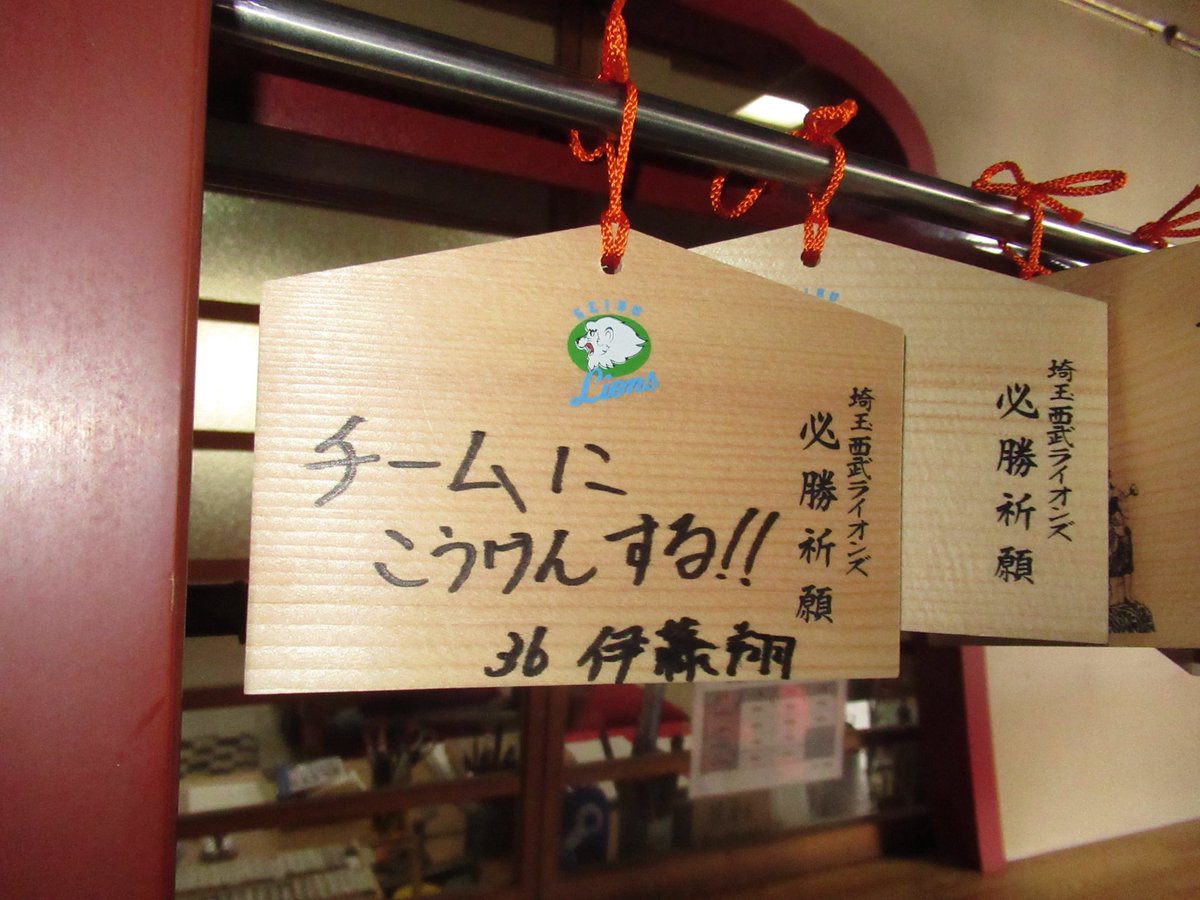 SEIBU
Lions
チームに
こうけんする!!
36 伊藤翔
埼玉西武ライオンズ
必勝祈願
埼玉西武ライオンズ
必勝祈願